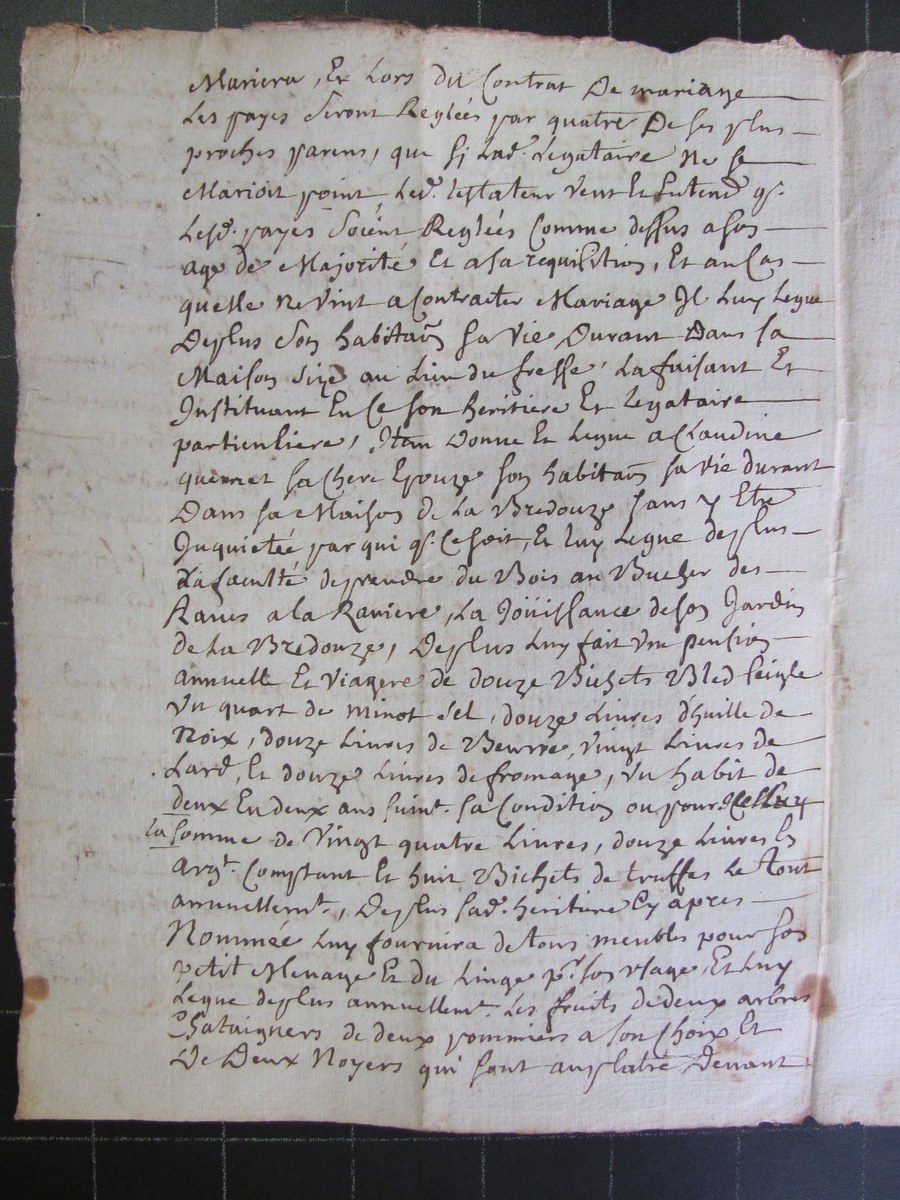 Mariera, Et Lors du Contrat De mariage
Les payes Seront Reglées par quatre De ses plus
proches parens, que si Lad. Legataire Ne se
Marioit point, Led. testateur veut Et Entend q.
Lesd. payes Soient Reglées Comme dessus a son
age de Majorité Et a sa requisition, Et au Cas
quelle ne vint a Contracter Mariage Il Luy Legue
Deplus Son habitaõn Sa vie Durant Dans sa
Maison Size au Lieu du fresse, La faisant Et
Instituant En Ce son heritiere Et Legataire
particuliere, Itam Donne Et Legue a Claudine
sa Chere Epouze son habitaõn sa vie durant
Dans sa Maison de La Bredouze sans y Etre
Inquietée par qui q. Ce soit, Et luy Legue deplus
La faculté deprendre du Bois au Bucher des
a la Raviere, La Joüissance de son Jardin
de La Bredouze, Deplus Luy fait une pension
annuelle Et Viagere de douze Bichets Bled seigle
Un quart de minot sel, douze Livres d'huille de
Noix, douze Livres de Beurre, vingt Livres de
Lard, Et douze Livres de fromage, Un habit de
deux En deux ans suivt. sa Condition ou pour Icelluy
la somme de Vingt quatre Livres, douze Livres En
argt. Comptant Et huit Bichets de truffes Le tout
annuellemt., Deplus sad. heritiere Cy apres
Nommée Luy fournira de tous meubles pour son
petit Menage Et du Linge pr. son usage, Et Luy
Legue deplus annuellemt. Les fruits de deux arbres
Chataigners de deux pommiers a son Choix Et
De Deux Noyers qui sont au platre Devant